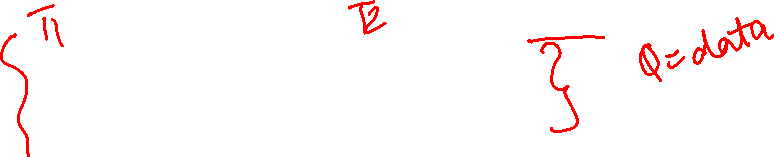 { T1 T2 } Q=data